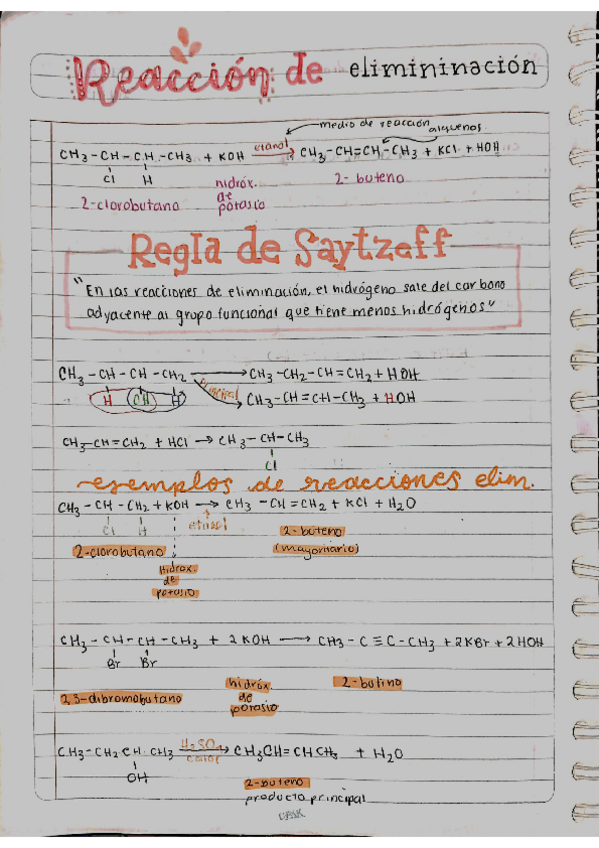 Reacción de elimininación
medio de reacción
etanol
alquenos.
CH3 - CH - CH - CH3 + KOH → CH3 - CH=CH - CH3 + KCl + HOH
Cl H
2-clorobutano
hidróx. de potasio
2- buteno
Regla de Saytzeff
"En las reacciones de eliminación, el hidrógeno sale del carbono
adyacente al grupo funcional que tiene menos hidrógenos"
CH3 - CH - CH - CH2 → CH3 - CH2 - CH = CH2 + HOH
H OH H
principal
CH3 - CH = CH - CH3 + HOH
CH3-CH=CH2 + HCl → CH3 - CH - CH3
Cl
ejemplos de reacciones elim.
CH3 - CH - CH2 + KOH → CH3 - CH = CH2 + KCl + H2O
Cl H
etanol
2-clorobutano
2-buteno
(mayoritario)
Hidróx.
de
potasio
CH3 - CH - CH - CH3 + 2KOH → CH3 - C ≡ C - CH3 + 2KBr + 2HOH
Br Br
2,3-dibromobutano
hidróx.
de
potasio
2-butino
CH3 - CH2 CH CH3 H2SO4 calor → CH3CH= CHCH3 + H2O
OH
2-buteno
producto principal